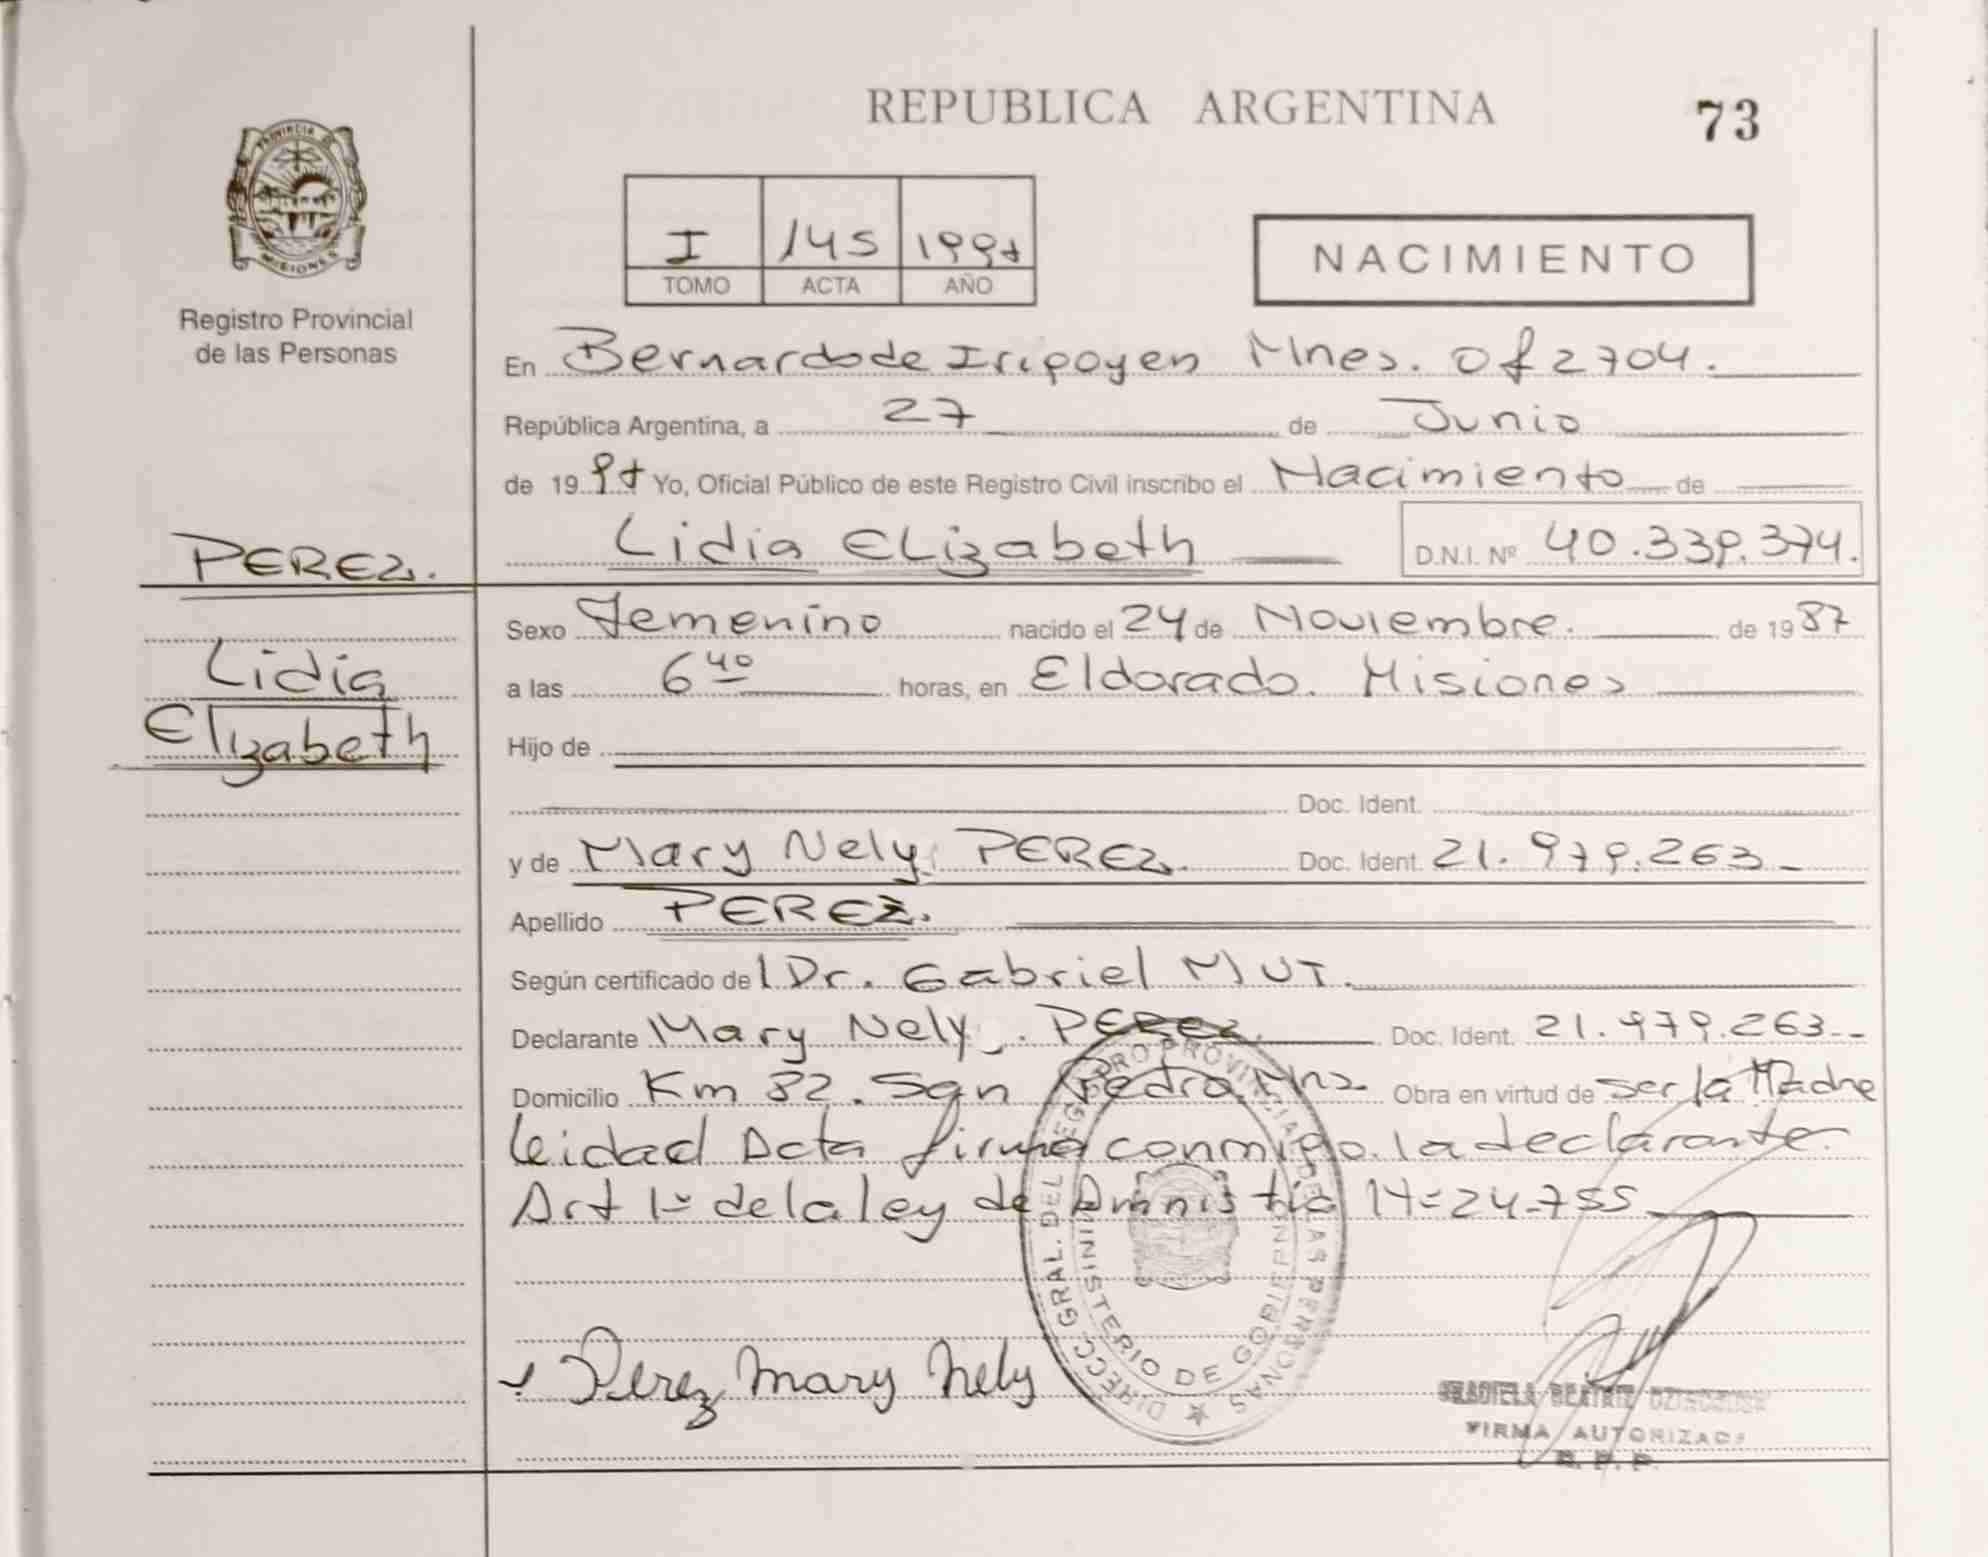 REPUBLICA ARGENTINA
73
PROVINCIA DE
MISIONES
Registro Provincial
de las Personas
I 145 1997
TOMO ACTA AÑO
NACIMIENTO
En Bernardo de Irigoyen Mnes. Of 2704.
República Argentina, a 27 de Junio
de 1997 Yo, Oficial Público de este Registro Civil inscribo el Nacimiento de
PEREZ.
Lidia Elizabeth D.N.I. Nº 40.339.374.
Sexo Femenino nacido el 24 de Noviembre. de 1987
Lidia
Elizabeth
a las 6 40 horas, en Eldorado. Misiones
Hijo de
Doc. Ident.
y de Mary Nely PEREZ. Doc. Ident. 21.979.263
Apellido PEREZ.
Según certificado del Dr. Gabriel MUT.
Declarante Mary Nely. PEREZ. Doc. Ident. 21.979.263
Domicilio Km 82. San Pedro. Mns Obra en virtud de Ser la Madre
leidad Acta firma conmigo. la declarante.
Art 1º de la ley de Amnistia Nº 24.755
Perez Mary Nely
DIRECC. GRAL. DEL REGISTRO PROVINCIAL DE LAS PERSONAS
MINISTERIO DE GOBIERNO
GRACIELA BEATRIZ
FIRMA AUTORIZADA
R. P. P.